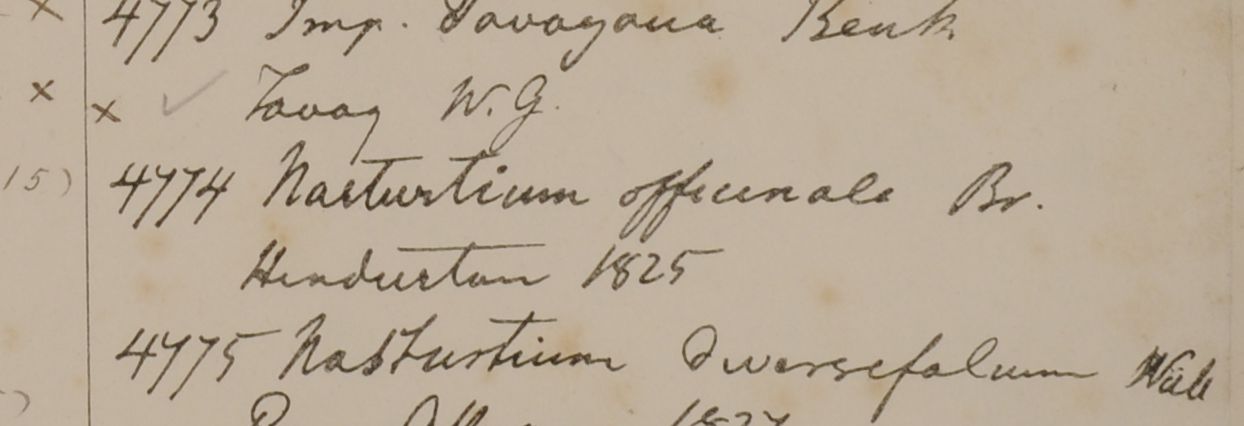 4773 Imp. Tavoyana Benth
× × ✓ Tavoy W.G.
15) 4774 Nasturtium officinale Br.
Hindustan 1825
4775 Nasturtium diversifolium Wall
1827